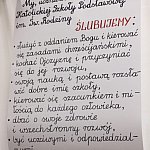 My, uczniowie
Katolickiej Szkoły Podstawowej
im. Św. Rodziny
ŚLUBUJEMY:
• służyć z oddaniem Bogu i kierować
się zasadami chrześcijańskimi,
• kochać Ojczyznę i przyczyniać
się do jej rozwoju,
• swoją nauką i postawą rozsła-
wiać dobre imię szkoły,
• kierować się szacunkiem i mi-
łością do każdego człowieka,
• dbać o swoje zdrowie
i wszechstronny rozwój,
• być uczciwymi i odpowiedzial-